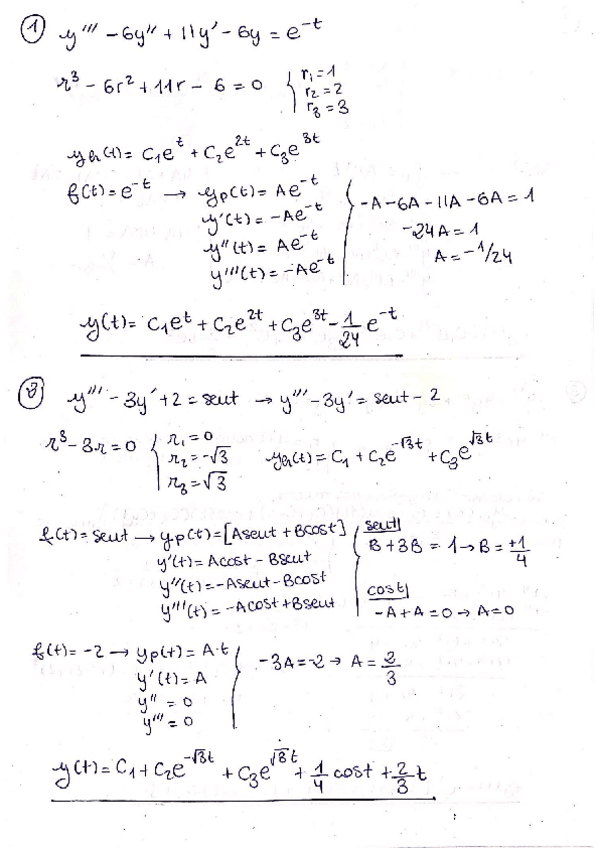 ① y''' - 6y'' + 11y' - 6y = e^-t
r³ - 6r² + 11r - 6 = 0 { r₁ = 1
r₂ = 2
r₃ = 3
yh(t) = C₁e^t + C₂e^2t + C₃e^3t
f(t) = e^-t → yp(t) = Ae^-t
y'(t) = -Ae^-t
y''(t) = Ae^-t
y'''(t) = -Ae^-t
-A - 6A - 11A - 6A = 1
-24A = 1
A = -1/24
y(t) = C₁e^t + C₂e^2t + C₃e^3t - 1/24 e^-t
③ y''' - 3y' + 2 = sent → y''' - 3y' = sent - 2
r³ - 3r = 0 { r₁ = 0
r₂ = -√3
r₃ = √3
yh(t) = C₁ + C₂e^-√3t + C₃e^√3t
f(t) = sent → yp(t) = [Asent + Bcost]
y'(t) = Acost - Bsent
y''(t) = -Asent - Bcost
y'''(t) = -Acost + Bsent
sent|
B + 3B = 1 → B = +1/4
cost|
-A + A = 0 → A = 0
f(t) = -2 → yp(t) = A·t
y'(t) = A
y'' = 0
y''' = 0
-3A = -2 → A = 2/3
y(t) = C₁ + C₂e^-√3t + C₃e^√3t + 1/4 cost + 2/3 t